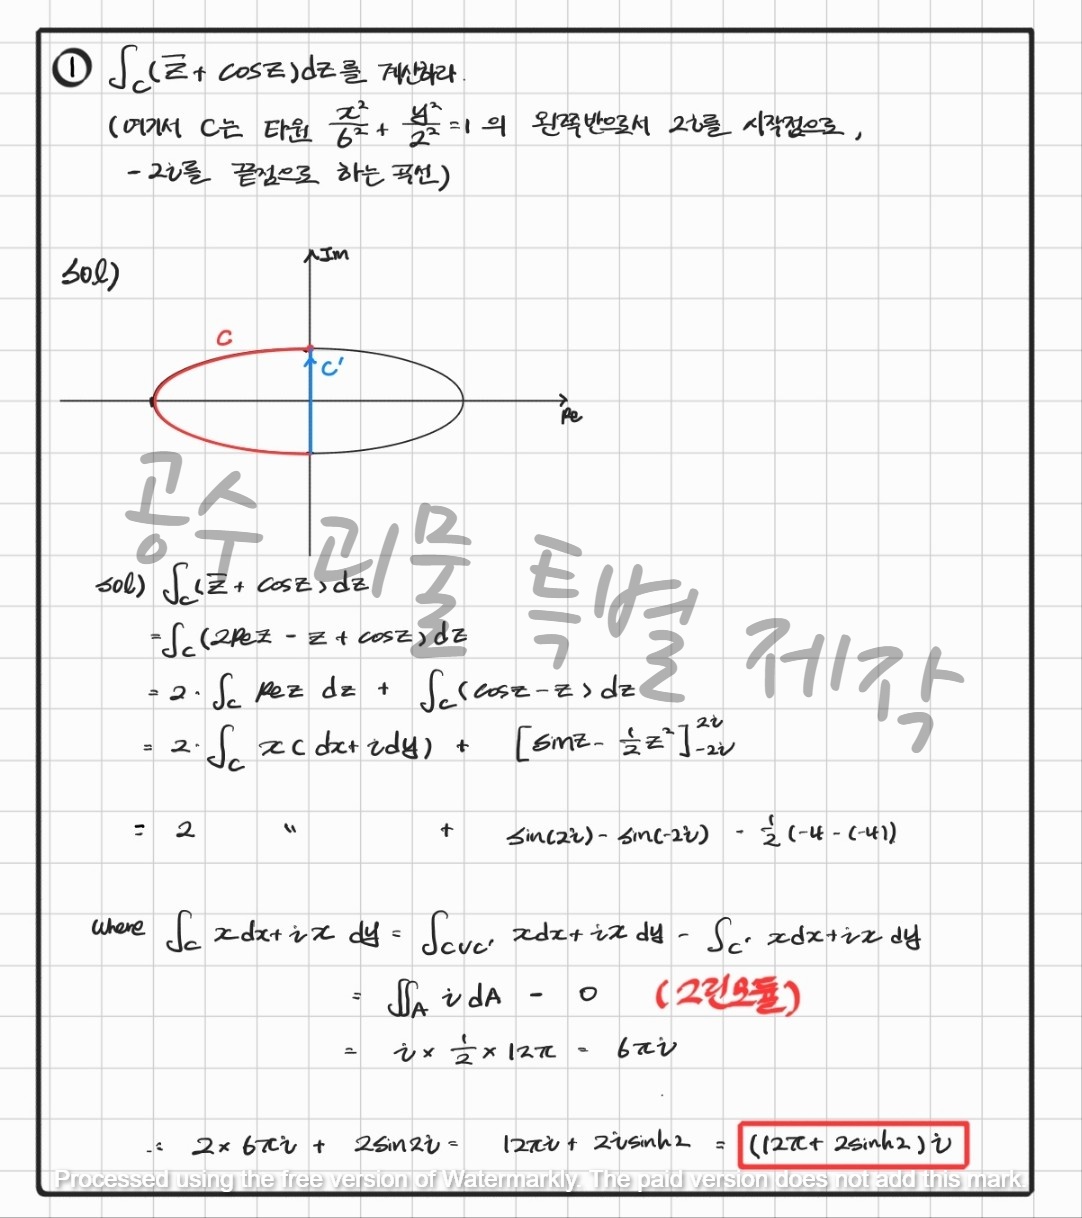 ① ∫_C (z̄ + cosz)dz를 계산하라.
(여기서 C는 타원 x²/6² + y²/2² = 1 의 왼쪽반으로서 2i를 시작점으로,
- 2i를 끝점으로 하는 곡선)
sol)
Im
C
C'
Re
공수 괴물 특별 제작
sol) ∫_C (z̄ + cosz)dz
= ∫_C (2Rez - z + cosz)dz
= 2· ∫_C Rez dz + ∫_C (cosz - z)dz
= 2· ∫_C x(dx+idy) + [sinz - ½z²]_{-2i}^{2i}
= 2 〃 + sin(2i) - sin(-2i) - ½(-4-(-4))
where ∫_C xdx+ix dy = ∫_{C∪C'} xdx+ix dy - ∫_{C'} xdx+ix dy
= ∬_A i dA - 0 (그린오듈)
= i × ½ × 12π = 6πi
∴ 2×6πi + 2sin2i = 12πi + 2isinh2 = (12π + 2sinh2)i
Processed using the free version of Watermarkly. The paid version does not add this mark.